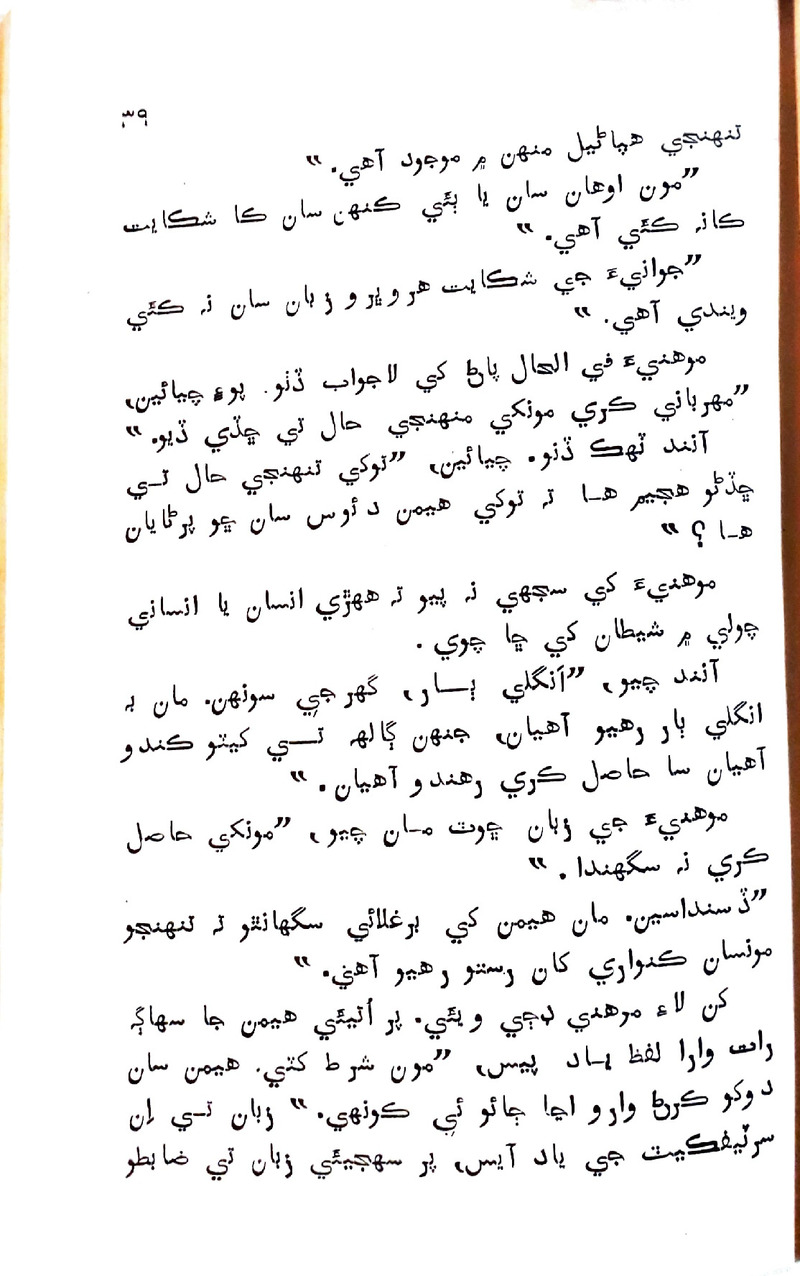 ٣٩
تنهنجي هٻاڻيل منهن ۾ موجود آهي.“
”مون اوهان سان يا ٻئي ڪنهن سان ڪا شڪايت
ڪانہ ڪئي آهي.“
”جوانيءَ جي شڪايت هروڀرو زبان سان نہ ڪئي
ويندي آهي.“
موهنيءَ في الحال پاڻ کي لاجواب ڏٺو. پوءِ چيائين،
”مهرباني ڪري مونکي منهنجي حال تي ڇڏي ڏيو.“
آنند ٽهڪ ڏنو. چيائين، ”توکي تنهنجي حال تي
ڇڏڻو هجيم ها تہ توکي هيمن دئوس سان ڇو پرڻايان
ها؟“
موهنيءَ کي سجهي نہ پيو تہ ههڙي انسان يا انساني
چولي ۾ شيطان کي ڇا چوي.
آنند چيو، ”اَنگلي ٻار، گهر جي سونهن. مان بہ
انگلي ٻار رهيو آهيان، جنهن ڳالهہ تي کيٽو ڪندو
آهيان سا حاصل ڪري رهندو آهيان.“
موهنيءَ جي زبان ڇوٽ مان چيو، ”مونکي حاصل
ڪري نہ سگهندا.“
”ڏسنداسين. مان هيمن کي برغلائي سگهانٿو تہ تنهنجو
مونسان ڪنواري کان رستو رهيو آهي.“
کن لاءِ موهني ڊڄي ويئي. پر اُتيئي هيمن جا سهاڳ
رات وارا لفظ ياد پيس، ”مون شرط کٽي. هيمن سان
دوکو ڪرڻ وارو اڃا ڄائو ئي ڪونهي.“ زبان تي اِن
سرٽيفڪيٽ جي ياد آيس، پر سهجيئي زبان تي ضابطو